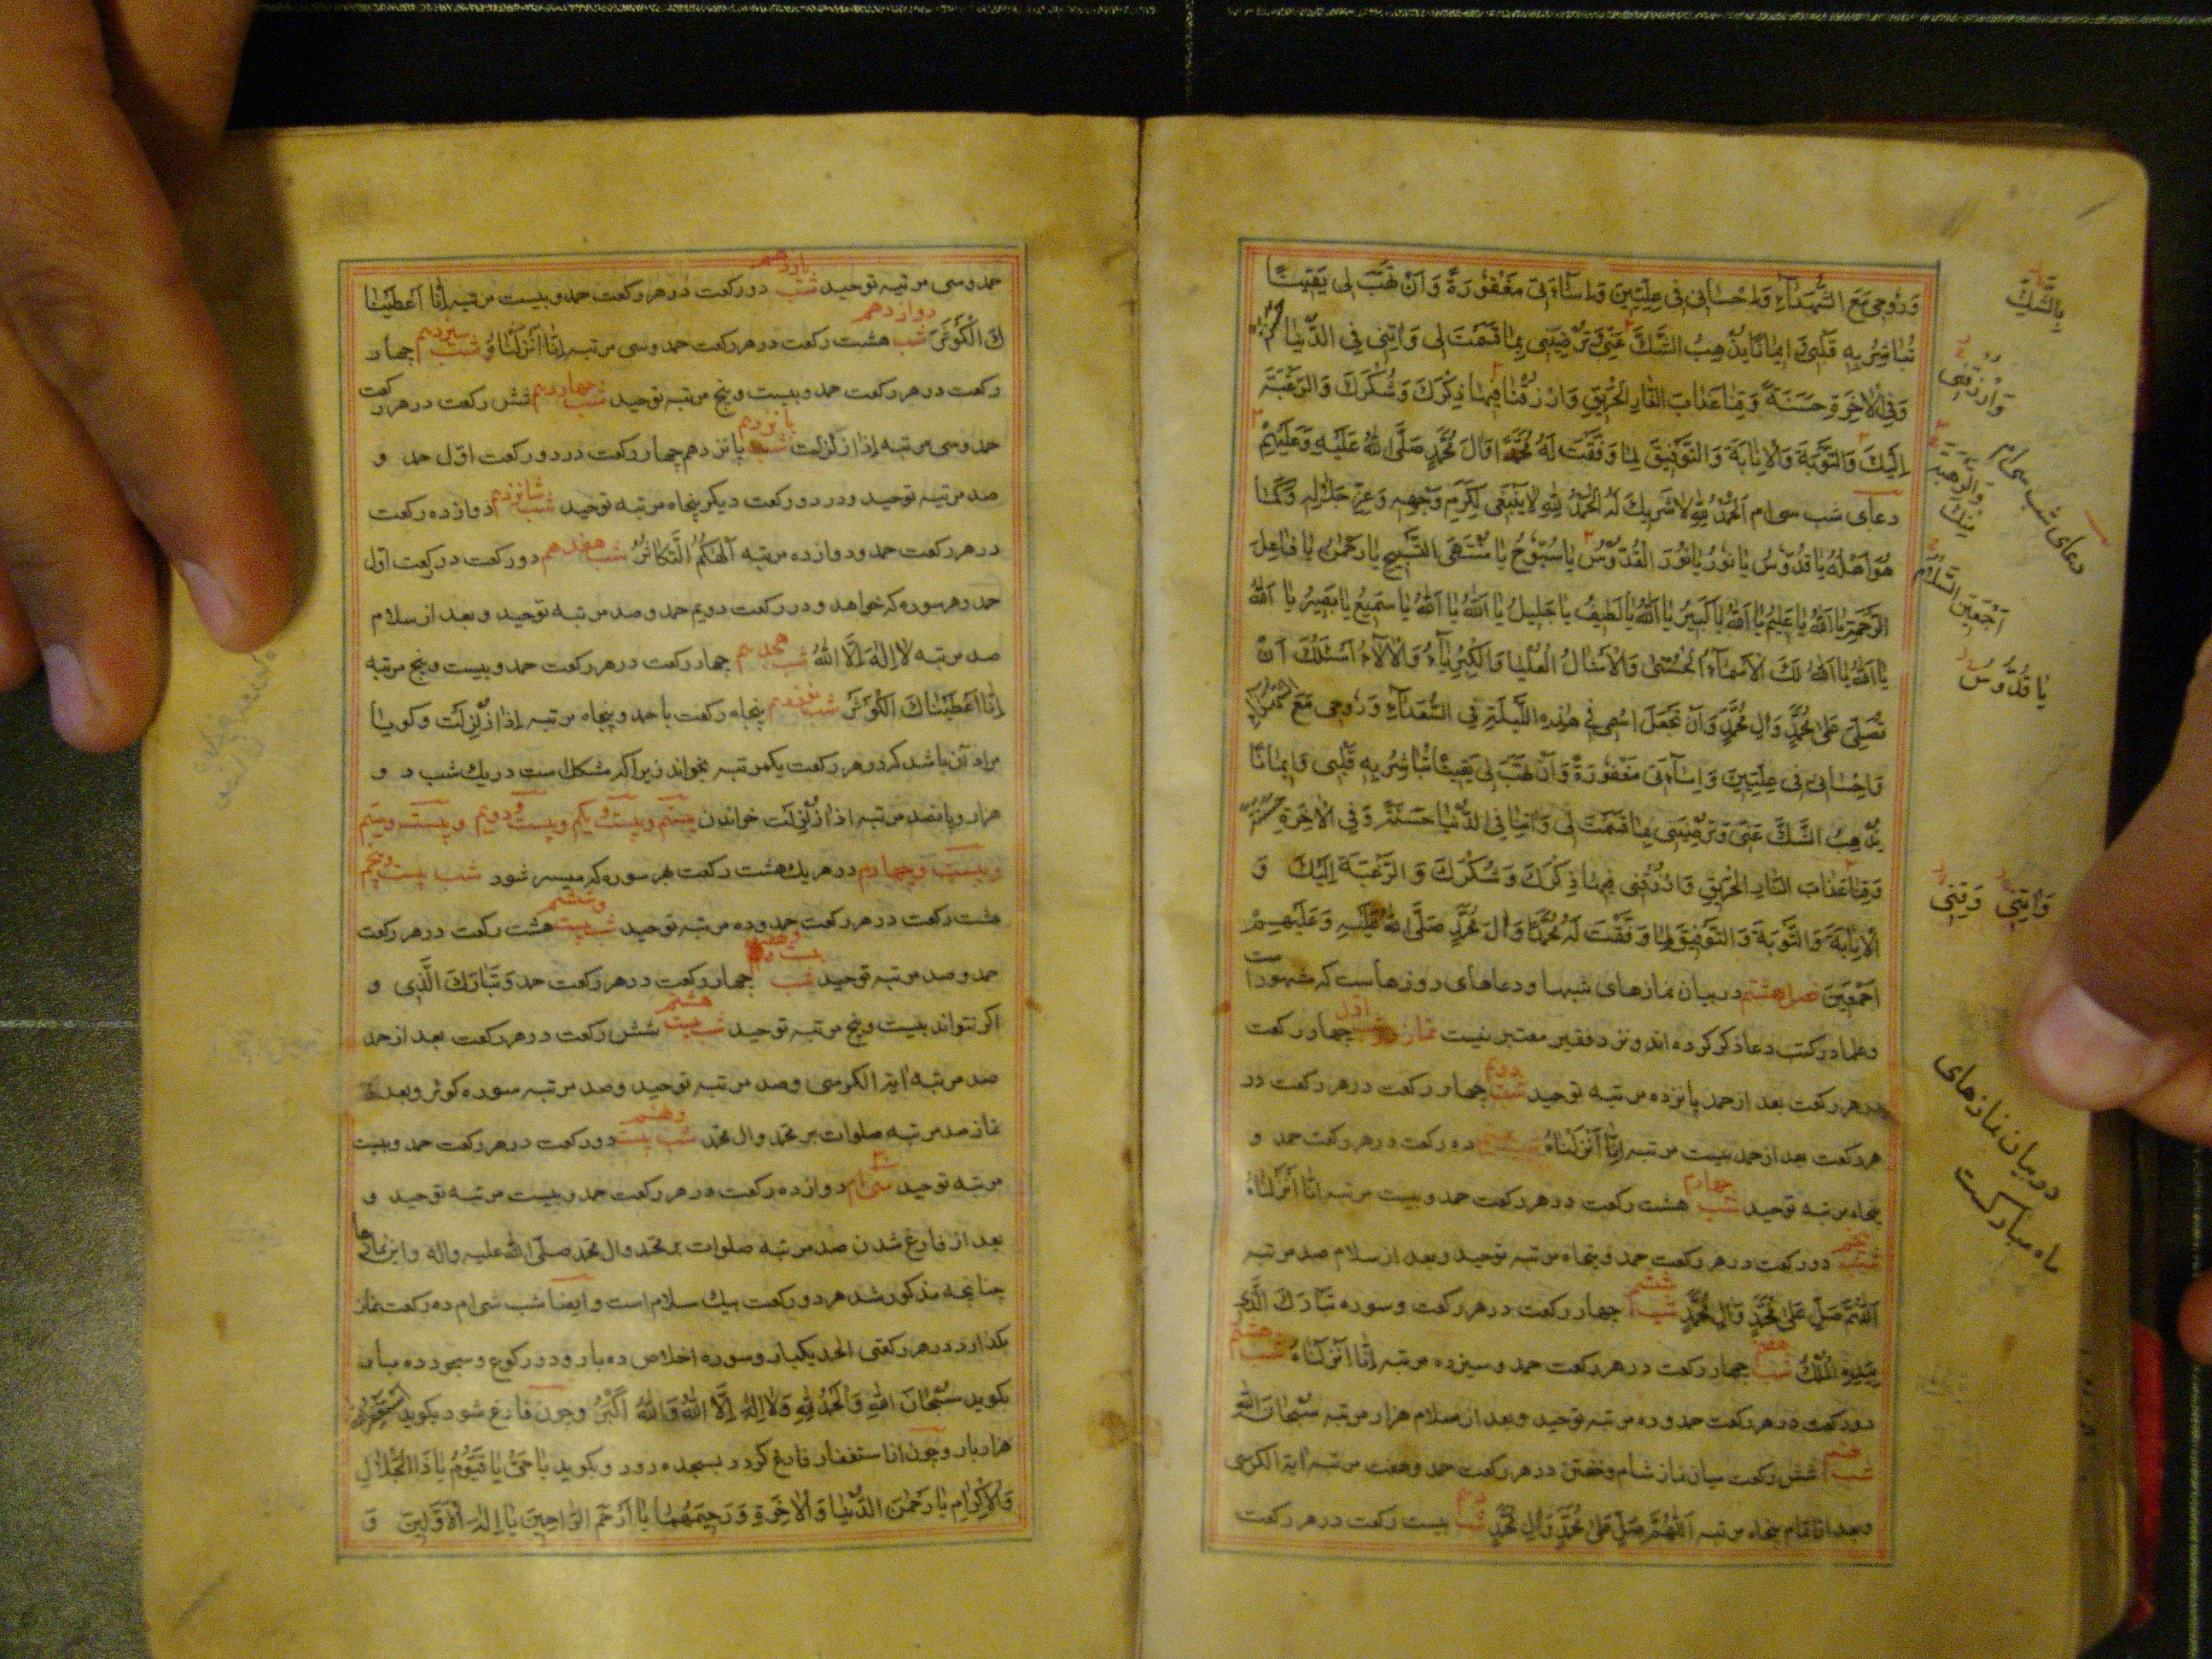 وَرُوحی مَعَ الشُّهَدَآءِ وَاِحْسَانی فی عِلِّیّینَ وَاِسَآءَتی مَغْفُورَةً وَاَنْ تَهَبَ لی یَقینًا
تُبَاشِرُ بِهِ قَلْبی وَ ایمَانًا یُذْهِبُ الشَّكَّ عَنّی وَ تَرْضِیَنی بِمَا قَسَمْتَ لی وَ اٰتِنی فِی الدُّنْیَا
وَفِی الْاٰخِرَةِ حَسَنَةً وَقِنَا عَذَابَ النَّارِ الْحَریقِ وَارْزُقْنَا فیهَا ذِکْرَكَ وَشُکْرَكَ وَالرَّغْبَةَ
اِلَیْكَ وَالتَّوْبَةَ وَالْاِنَابَةَ وَالتَّوْفیقَ لِمَا وَفَّقْتَ لَهُ مُحَمَّدًا وَاٰلَ مُحَمَّدٍ صَلَّی اللهُ عَلَیْهِ وَعَلَیْهِمْ
دعای شب سی ام اَلْحَمْدُ لِلّٰهِ لَا شَرِیكَ لَهُ اَلْحَمْدُ لِلّٰهِ کَمَا یَنْبَغی لِکَرَمِ وَجْهِهِ وَعِزِّ جَلَالِهِ وَکَمَا
هُوَ اَهْلُهُ یَا قُدُّوسُ یَا نُورُ یَا نُورَ الْقُدُّوسِ یَا سُبُّوحُ یَا مُنْتَهَی التَّسْبیحِ یَا رَحْمٰنُ یَا فَاعِلَ
الرَّحْمَةِ یَا اَللهُ یَا عَلیمُ یَا اَللهُ یَا کَبیرُ یَا اَللهُ یَا لَطیفُ یَا جَلیلُ یَا اَللهُ یَا اَللهُ یَا سَمیعُ یَا بَصیرُ یَا اَللهُ
یَا اَللهُ یَا اَللهُ لَكَ الْاَسْمَآءُ الْحُسْنٰی وَالْاَمْثَالُ الْعُلْیَا وَالْکِبْرِیَآءُ وَالْاٰلَآءُ اَسْئَلُكَ اَنْ
تُصَلِّیَ عَلٰی مُحَمَّدٍ وَاٰلِ مُحَمَّدٍ وَاَنْ تَجْعَلَ اسْمی فی هٰذِهِ اللَّیْلَةِ فِی السُّعَدَآءِ وَرُوحی مَعَ الشُّهَدَآءِ
وَاِحْسَانی فی عِلِّیّینَ وَاِسَآءَتی مَغْفُورَةً وَاَنْ تَهَبَ لی یَقینًا تُبَاشِرُ بِهِ قَلْبی وَایمَانًا
یُذْهِبُ الشَّكَّ عَنّی وَتُرْضِیَنی بِمَا قَسَمْتَ لی وَاٰتِنَا فِی الدُّنْیَا حَسَنَةً وَفِی الْاٰخِرَةِ حَسَنَةً
وَقِنَا عَذَابَ النَّارِ الْحَریقِ وَارْزُقْنی فیهَا ذِکْرَكَ وَشُکْرَكَ وَالرَّغْبَةَ اِلَیْكَ وَ
الْاِنَابَةَ وَالتَّوْبَةَ وَالتَّوْفیقَ لِمَا وَفَّقْتَ لَهُ مُحَمَّدًا وَاٰلَ مُحَمَّدٍ صَلَّی اللهُ عَلَیْهِ وَعَلَیْهِمْ
اَجْمَعینَ فصل هشتم در بیان نمازهای شبها و دعاهای روزهاست که مشهور است
و علما در کتب دعا ذکر کرده اند و نزد فقیر معتبر نیست نماز شب اول چهار رکعت
در هر رکعت بعد از حمد پانزده مرتبه توحید شب دویم چهار رکعت در هر رکعت در
هر رکعت بعد از حمد بیست مرتبه اِنَّا اَنْزَلْنَاهُ ده رکعت در هر رکعت حمد و
پنجاه مرتبه توحید شب چهارم هشت رکعت در هر رکعت حمد و بیست مرتبه اِنَّا اَنْزَلْنَاهُ
شب پنجم دو رکعت در هر رکعت حمد و پنجاه مرتبه توحید و بعد از سلام صد مرتبه
اَللّٰهُمَّ صَلِّ عَلٰی مُحَمَّدٍ وَاٰلِ مُحَمَّدٍ شب ششم چهار رکعت در هر رکعت و سوره تَبَارَكَ الَّذی
بِیَدِهِ الْمُلْكُ شب هفتم چهار رکعت در هر رکعت حمد و سیزده مرتبه اِنَّا اَنْزَلْنَاهُ شب هشتم
دو رکعت در هر رکعت حمد و ده مرتبه توحید و بعد از سلام هزار مرتبه سُبْحَانَ اللهِ
شب نهم شش رکعت میان نماز شام و خفتن در هر رکعت حمد و هفت مرتبه آیة الکرسی
و بعد از اتمام پنجاه مرتبه اَللّٰهُمَّ صَلِّ عَلٰی مُحَمَّدٍ وَاٰلِ مُحَمَّدٍ شب دهم بیست رکعت در هر رکعت
بِالشَّكِّ
وَارْزُقْنی
وَالرَّهْبَةَ
مِنْكَ
دعای شب سی ام
اَجْمَعینَ السَّلَامُ
یَا قُدُّوسُ
وَاٰتِنی وَقِنی
در بیان نمازهای
ماه مبارکست
حمد و سی مرتبه توحید شب یازدهم دو رکعت در هر رکعت حمد و بیست مرتبه اِنَّا اَعْطَیْنَا
كَ الْکَوْثَرَ شب دوازدهم هشت رکعت در هر رکعت حمد و سی مرتبه اِنَّا اَنْزَلْنَاهُ شب سیزدهم چهار
رکعت در هر رکعت حمد و بیست و پنج مرتبه توحید شب چهاردهم شش رکعت در هر رکعت
حمد و سی مرتبه اِذَا زُلْزِلَت شب پانزدهم پانزدهم چهار رکعت در دو رکعت اول حمد و
صد مرتبه توحید و در دو رکعت دیکر پنجاه مرتبه توحید شب شانزدهم دوازده رکعت
در هر رکعت حمد و دوازده مرتبه اَلْهٰکُمُ التَّکَاثُرُ شب هفدهم دو رکعت در رکعت اول
حمد و هر سوره که خواهد و در رکعت دویم حمد و صد مرتبه توحید و بعد از سلام
صد مرتبه لَا اِلٰهَ اِلَّا اللهُ شب هجدهم چهار رکعت در هر رکعت حمد و بیست و پنج مرتبه
اِنَّا اَعْطَیْنَاكَ الْکَوْثَرَ شب نوزدهم پنجاه رکعت با حمد و پنجاه مرتبه اِذَا زُلْزِلَت و کویا
مراد آن باشد که در هر رکعت یکمرتبه بخواند زیرا که مشکل است در یك شب د و
هزار و پانصد مرتبه اذا زُلْزِلَت خواندن بیستم و بیست و یکم و بیست و دویم و بیست و سیّم
و بیست و چهارم در هر یك هشت رکعت بهر سوره که میسر شود شب بیست و پنجم
هشت رکعت در هر رکعت حمد و ده مرتبه توحید شب بیست و ششم هشت رکعت در هر رکعت
حمد و صد مرتبه توحید شب بیست و هفتم چهار رکعت در هر رکعت حمد و تَبَارَكَ الَّذی و
اکر نتواند بیست و پنج مرتبه توحید شب بیست هشتم شش رکعت در هر رکعت بعد از حمد
صد مرتبه آیة الکرسی و صد مرتبه توحید و صد مرتبه سوره کوثر و بعد
نماز صد مرتبه صلوات بر محمّد وال محمّد شب بیست و نهم دو رکعت در هر رکعت حمد و بیست
مرتبه توحید سی ام دوازده رکعت در هر رکعت حمد و بیست مرتبه توحید و
بعد از فارغ شدن صد مرتبه صلوات بر محمّد وال محمّد صلّی الله علیه واله و این نمازها
چنانچه مذکور شد هر دو رکعت بیك سلام است و ایضا شب سی ام ده رکعت نماز
بکذارد در هر رکعتی الحمد یکبار و سوره اخلاص ده بار و در رکوع و سجود ده بار
بکوید سُبْحَانَ اللهِ وَالْحَمْدُ لِلّٰهِ وَلَا اِلٰهَ اِلَّا اللهُ وَاللهُ اَکْبَرُ و چون فارغ شود بکوید
هزار بار و چون از استغفار فارغ کردد بسجده رود و بکوید یَا حَیُّ یَا قَیُّومُ یَا ذَا الْجَلَالِ
وَالْاِکْرَامِ یَا رَحْمٰنَ الدُّنْیَا وَالْاٰخِرَةِ وَرَحیمَهُمَا یَا اَرْحَمَ الرَّاحِمینَ یَا اِلٰهَ الْاَوَّلینَ وَ